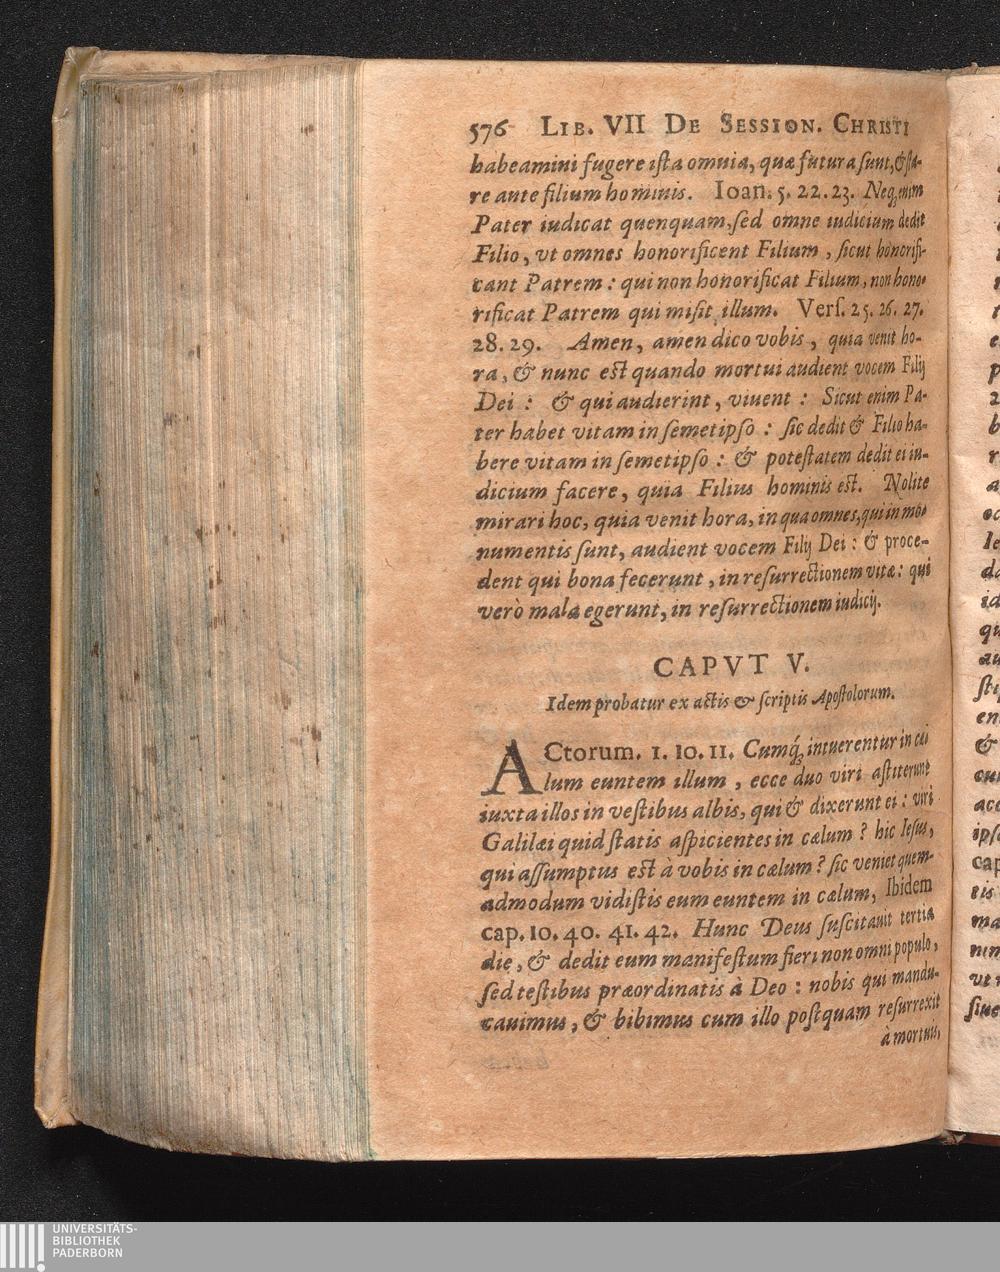 576 LIB. VII DE SESSION. CHRISTI
habeamini fugere ista omnia, quæ futura sunt, & sta-
re ante filium hominis. Ioan. 5. 22. 23. Neq; enim
Pater iudicat quenquam, sed omne iudicium dedit
Filio, vt omnes honorificent Filium, sicut honorifi-
cant Patrem: qui non honorificat Filium, non hono-
rificat Patrem qui misit illum. Vers. 25. 26. 27.
28. 29. Amen, amen dico vobis, quia venit ho-
ra, & nunc est quando mortui audient vocem Filij
Dei: & qui audierint, viuent: Sicut enim Pa-
ter habet vitam in semetipso: sic dedit & Filio ha-
bere vitam in semetipso: & potestatem dedit ei iu-
dicium facere, quia Filius hominis est. Nolite
mirari hoc, quia venit hora, in qua omnes, qui in mo-
numentis sunt, audient vocem Filij Dei: & proce-
dent qui bona fecerunt, in resurrectionem vitæ: qui
verò mala egerunt, in resurrectionem iudicij.
CAPVT V.
Idem probatur ex actis & scriptis Apostolorum.
ACtorum. 1. 10. 11. Cumq; intuerentur in cæ
lum euntem illum, ecce duo viri astiterunt
iuxta illos in vestibus albis, qui & dixerunt ei: viri
Galilæi quid statis aspicientes in cælum? hic Iesus,
qui assumptus est à vobis in cælum? sic veniet quem-
admodum vidistis eum euntem in cælum, Ibidem
cap. 10. 40. 41. 42. Hunc Deus suscitauit tertia
die, & dedit eum manifestum fieri non omni populo,
sed testibus præordinatis à Deo: nobis qui mandu-
cauimus, & bibimus cum illo postquam resurrexit
à mortuis,
UNIVERSITÄTS-
BIBLIOTHEK
PADERBORN